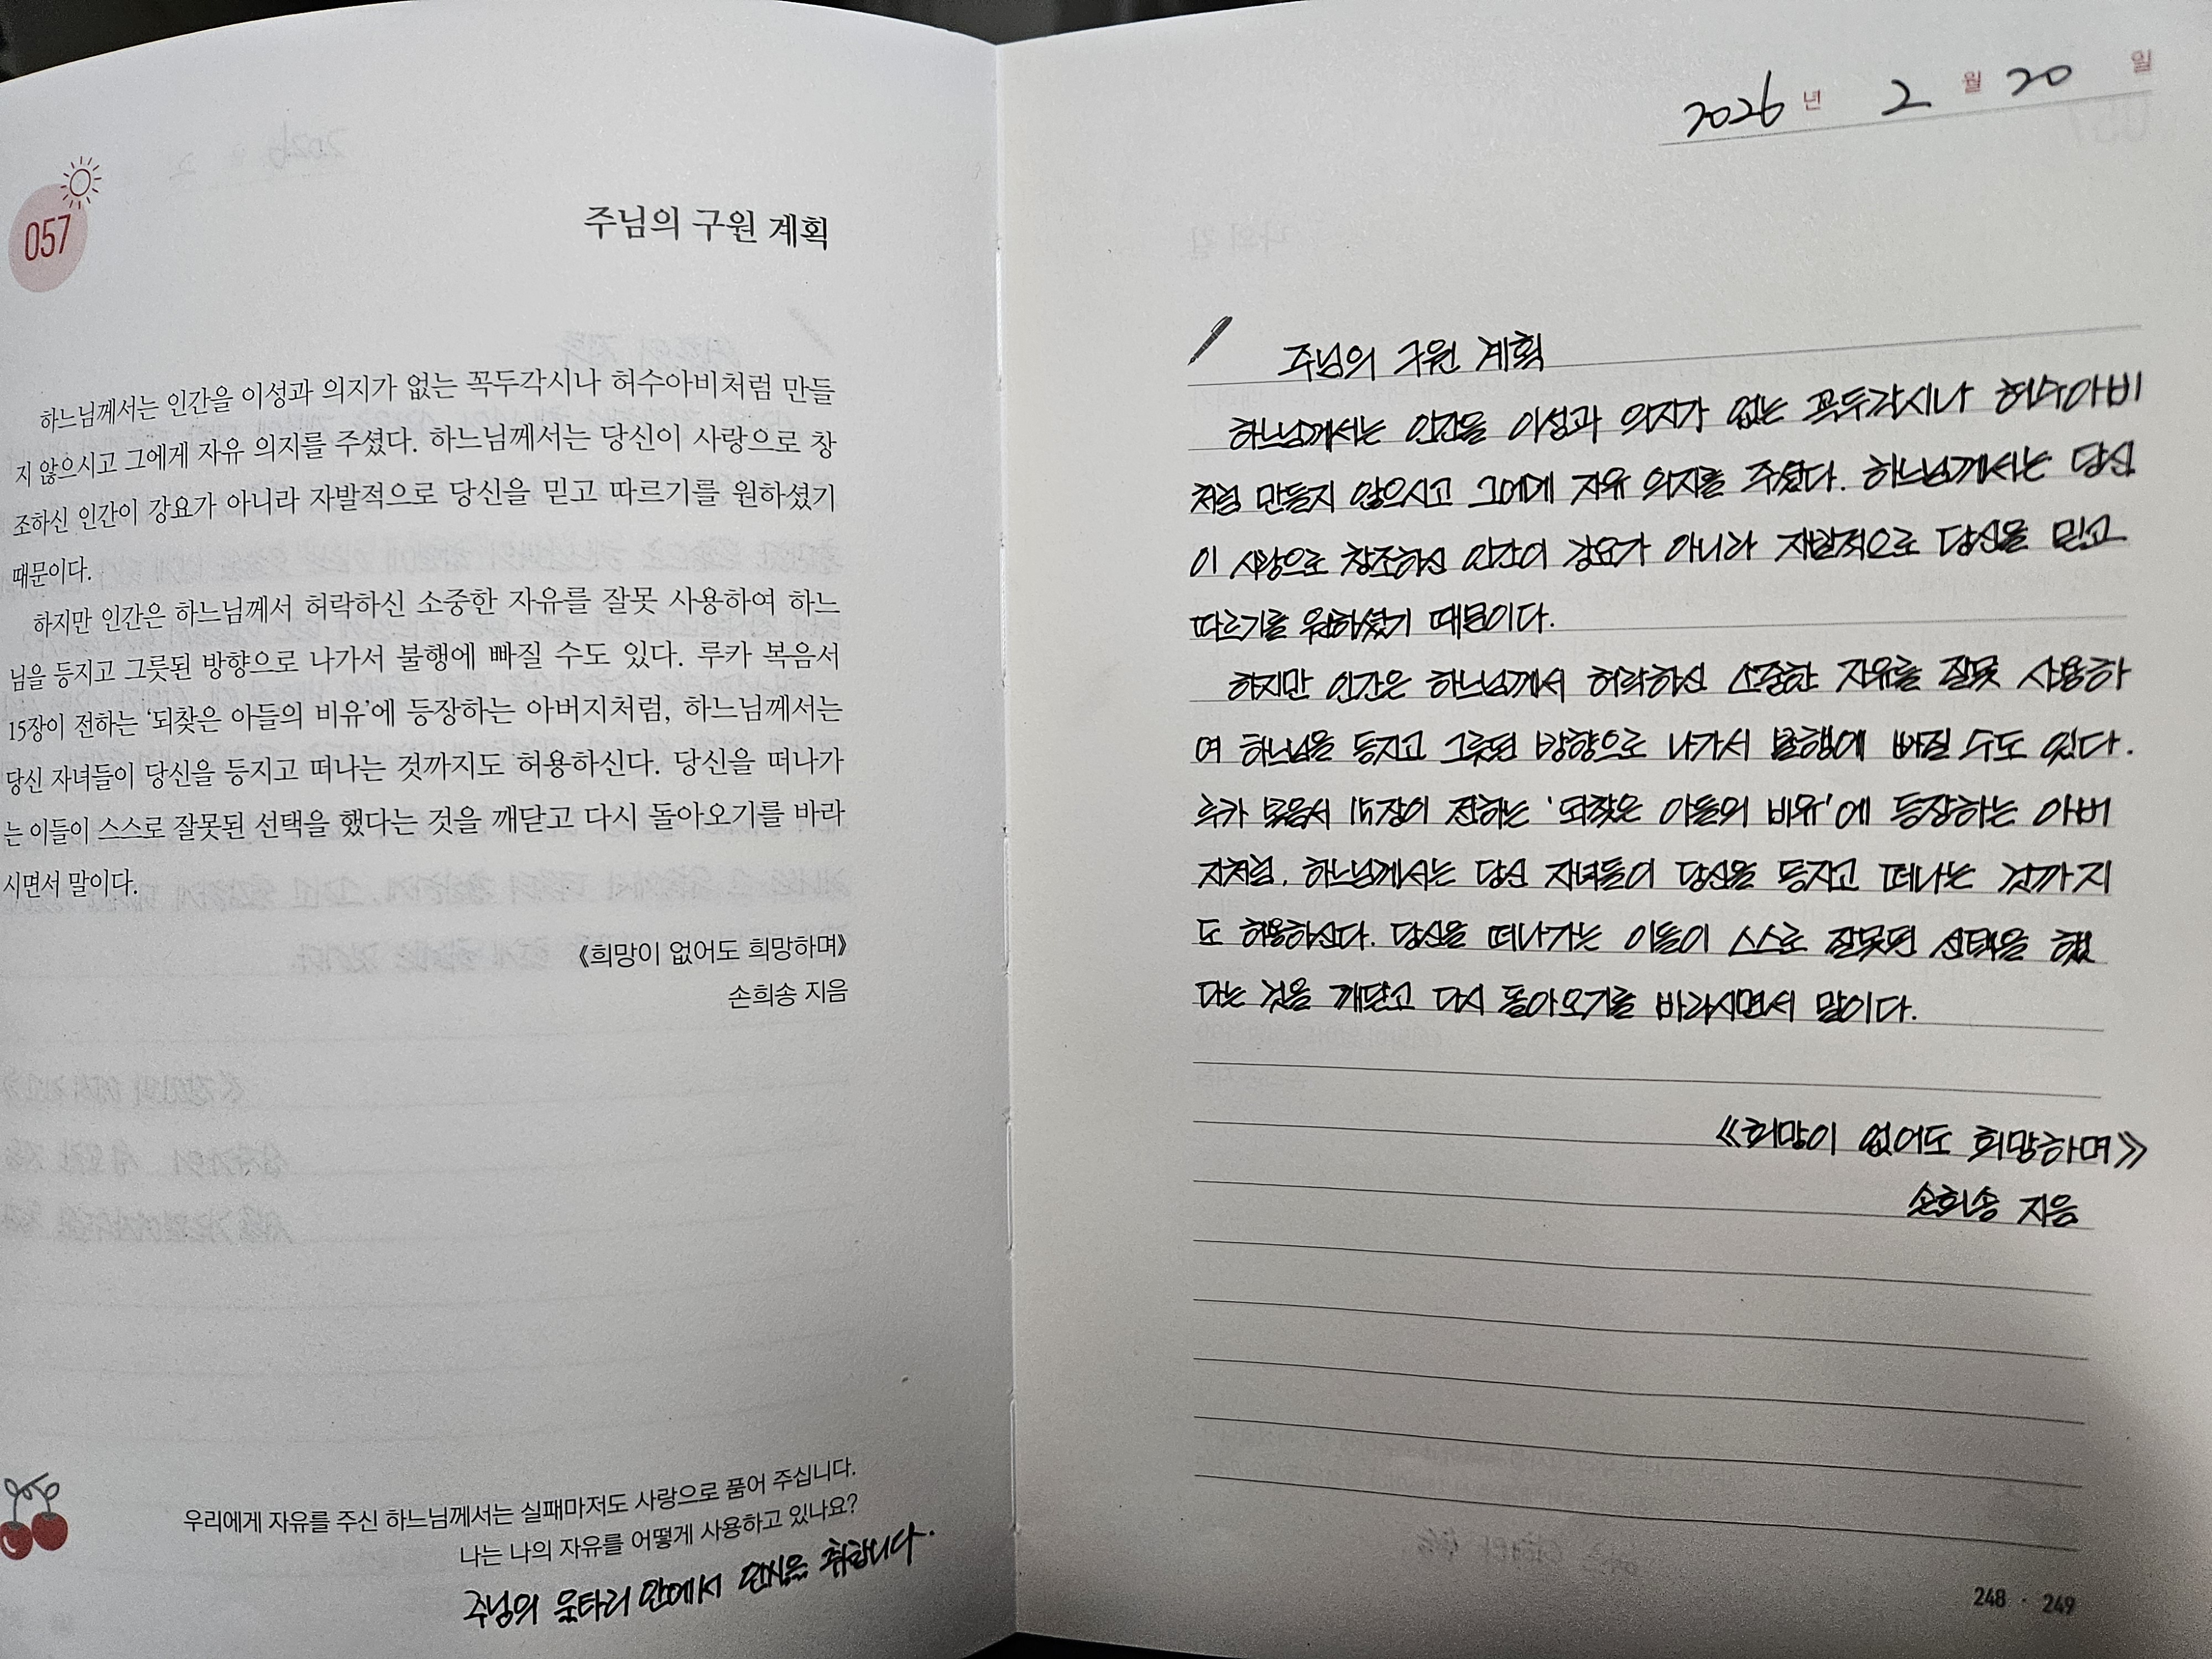 057
주님의 구원 계획
하느님께서는 인간을 이성과 의지가 없는 꼭두각시나 허수아비처럼 만들
지 않으시고 그에게 자유 의지를 주셨다. 하느님께서는 당신이 사랑으로 창
조하신 인간이 강요가 아니라 자발적으로 당신을 믿고 따르기를 원하셨기
때문이다.
하지만 인간은 하느님께서 허락하신 소중한 자유를 잘못 사용하여 하느
님을 등지고 그릇된 방향으로 나가서 불행에 빠질 수도 있다. 루카 복음서
15장이 전하는 ‘되찾은 아들의 비유’에 등장하는 아버지처럼, 하느님께서는
당신 자녀들이 당신을 등지고 떠나는 것까지도 허용하신다. 당신을 떠나가
는 이들이 스스로 잘못된 선택을 했다는 것을 깨닫고 다시 돌아오기를 바라
시면서 말이다.
《희망이 없어도 희망하며》
손희송 지음
우리에게 자유를 주신 하느님께서는 실패마저도 사랑으로 품어 주십니다.
나는 나의 자유를 어떻게 사용하고 있나요?
주님의 울타리 안에서 안식을 취합니다.
2026년 2월 20일
주님의 구원 계획
하느님께서는 인간을 이성과 의지가 없는 꼭두각시나 허수아비
처럼 만들지 않으시고 그에게 자유 의지를 주셨다. 하느님께서는 당신
이 사랑으로 창조하신 인간이 강요가 아니라 자발적으로 당신을 믿고
따르기를 원하셨기 때문이다.
하지만 인간은 하느님께서 허락하신 소중한 자유를 잘못 사용하
여 하느님을 등지고 그릇된 방향으로 나가서 불행에 빠질 수도 있다.
루카 복음서 15장이 전하는 '되찾은 아들의 비유'에 등장하는 아버
지처럼, 하느님께서는 당신 자녀들이 당신을 등지고 떠나는 것까지
도 허용하신다. 당신을 떠나가는 이들이 스스로 잘못된 선택을 했
다는 것을 깨닫고 다시 돌아오기를 바라시면서 말이다.
《희망이 없어도 희망하며》
손희송 지음
248 · 249